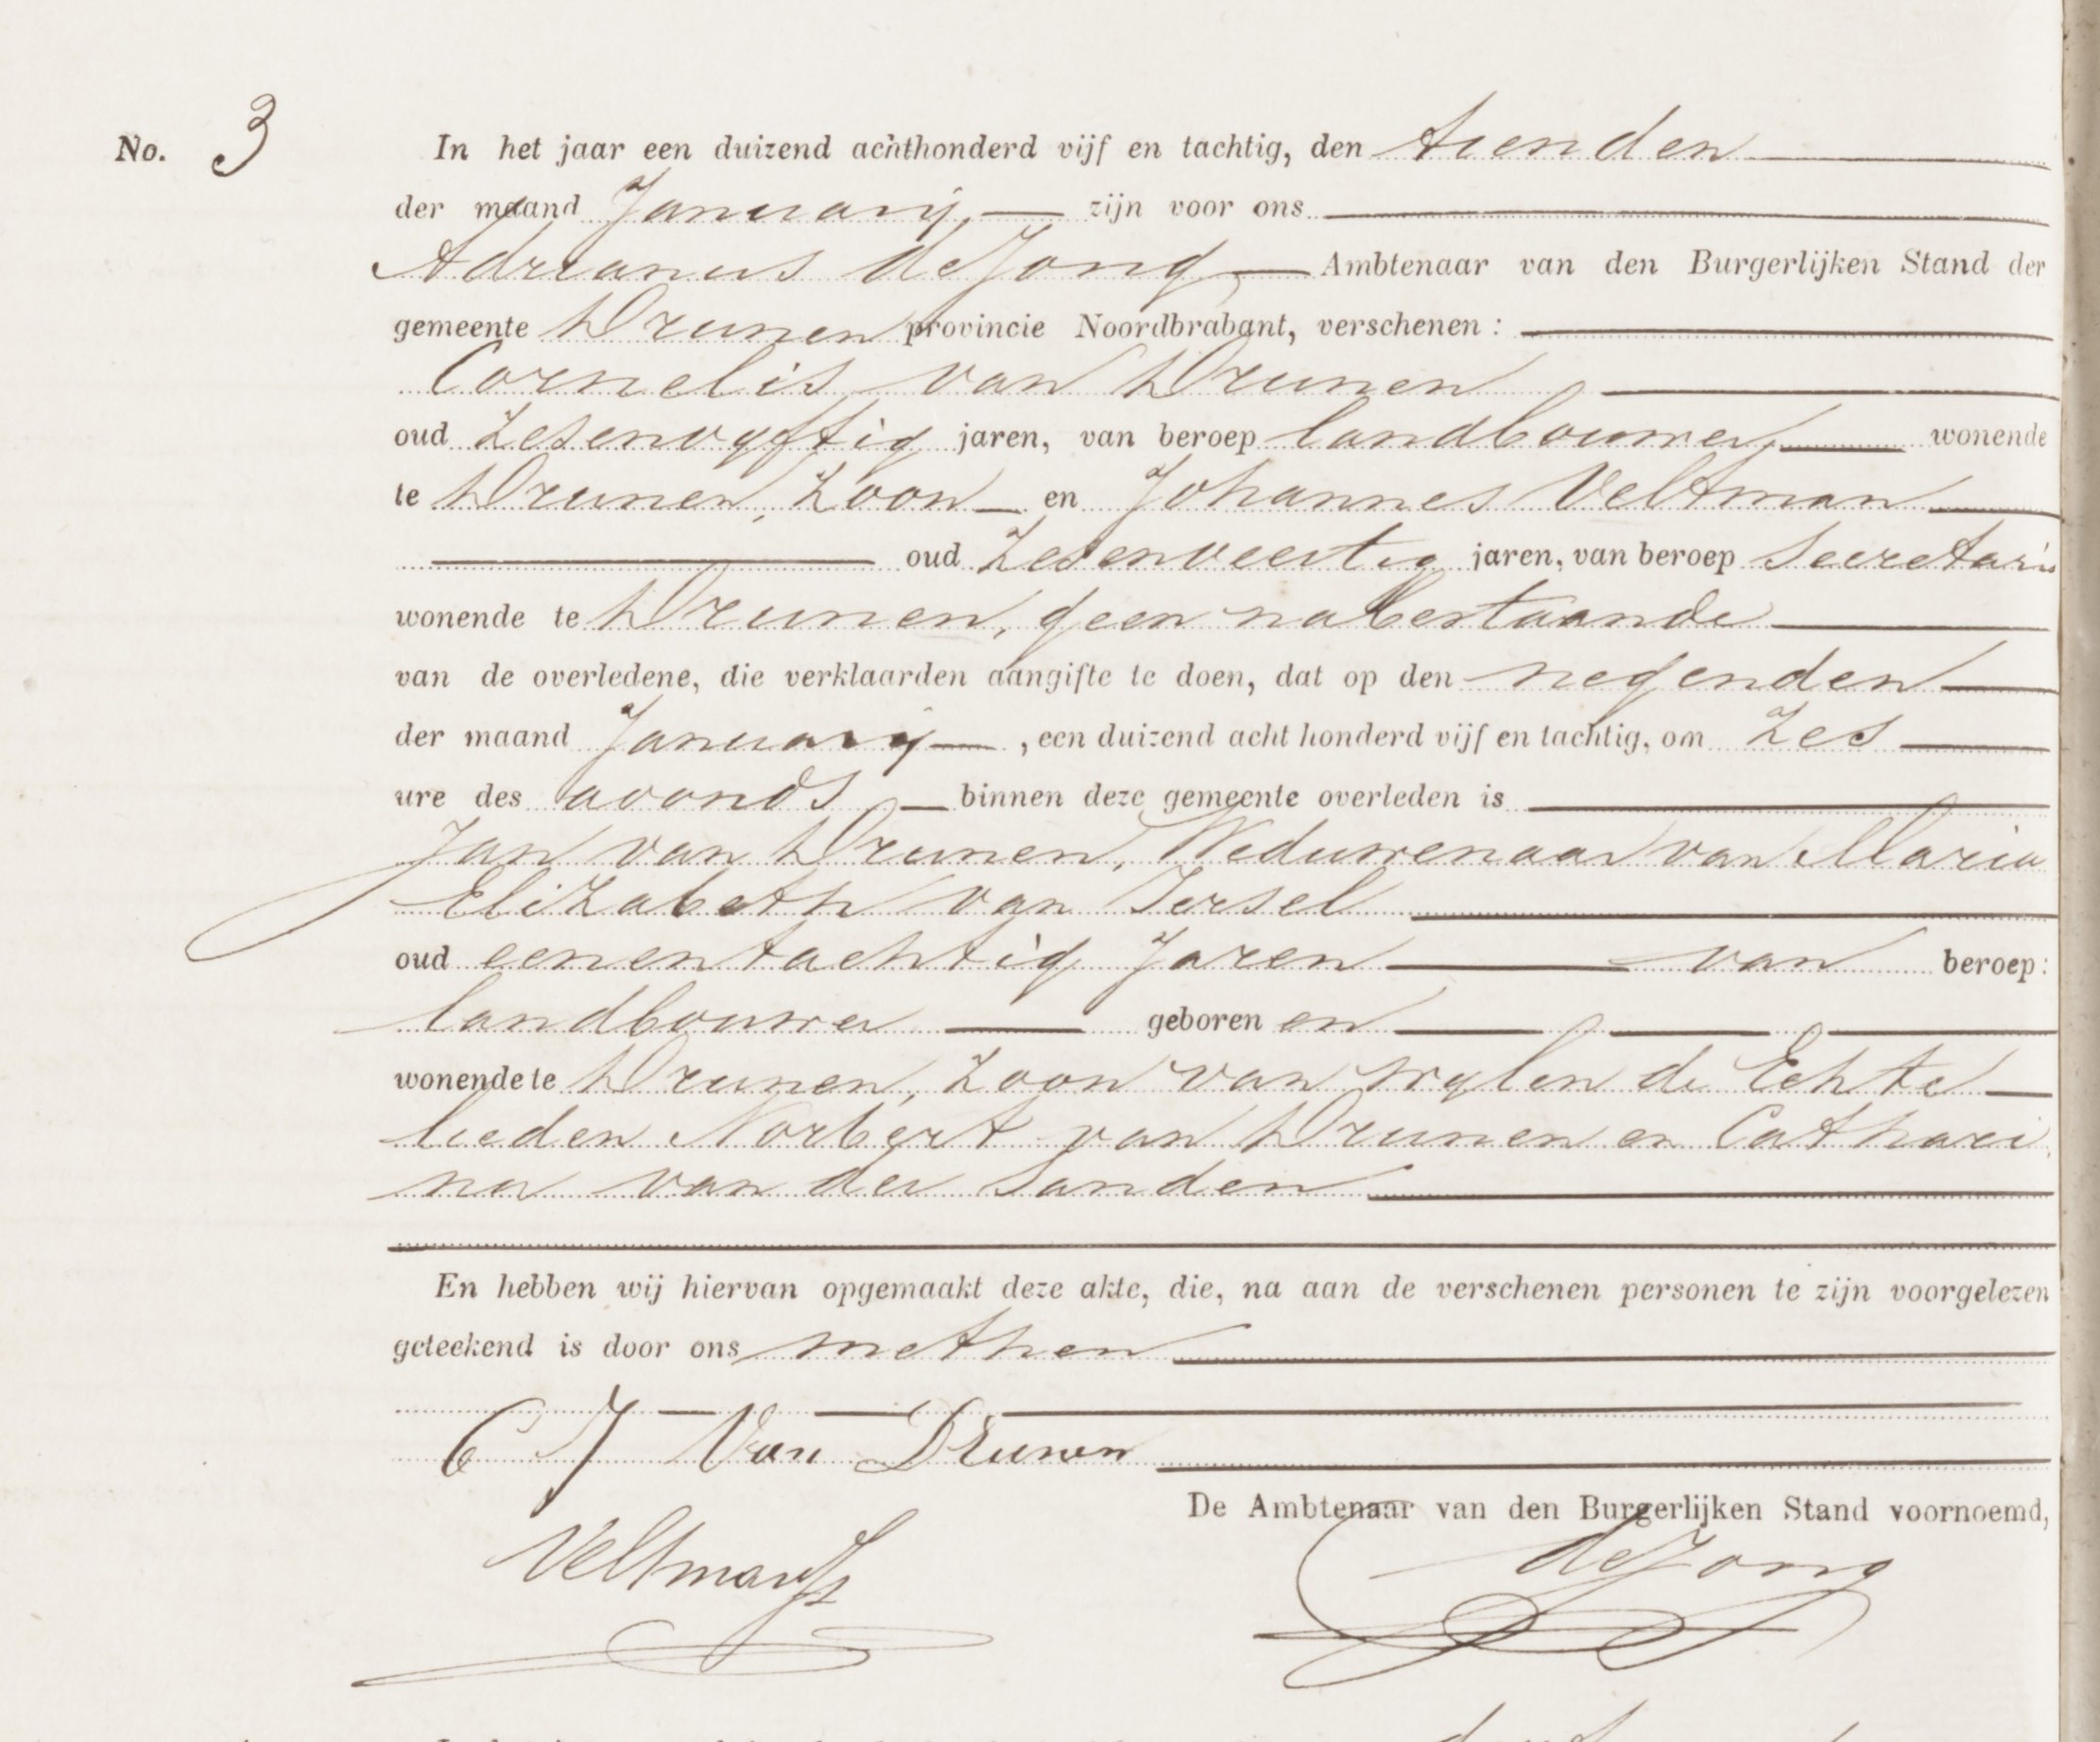 No. 3 In het jaar een duizend achthonderd vijf en tachtig, den tienden
der maand Januarij, zijn voor ons
Adrianus de Jong Ambtenaar van den Burgerlijken Stand der
gemeente Drunen provincie Noordbrabant, verschenen :
Cornelis van Drunen
oud zesenvyftig jaren, van beroep landbouwer, wonende
te Drunen, zoon en Johannes Veltman
oud zesenveertig jaren, van beroep secretaris
wonende te Drunen, geen nabestaande
van de overledene, die verklaarden aangifte te doen, dat op den negenden
der maand Januarij , een duizend acht honderd vijf en tachtig, om zes
ure des avonds binnen deze gemeente overleden is
Jan van Drunen, Weduwenaar van Maria
Elizabeth van Iersel
oud eenentachtig Jaren van beroep:
landbouwer geboren en
wonende te Drunen, zoon van wylen de Echte
lieden Norbert van Drunen en Cathari
na van der Sanden
En hebben wij hiervan opgemaakt deze akte, die, na aan de verschenen personen te zijn voorgelezen
geteekend is door ons met hen
C J Van Drunen
De Ambtenaar van den Burgerlijken Stand voornoemd,
Veltman de Jong